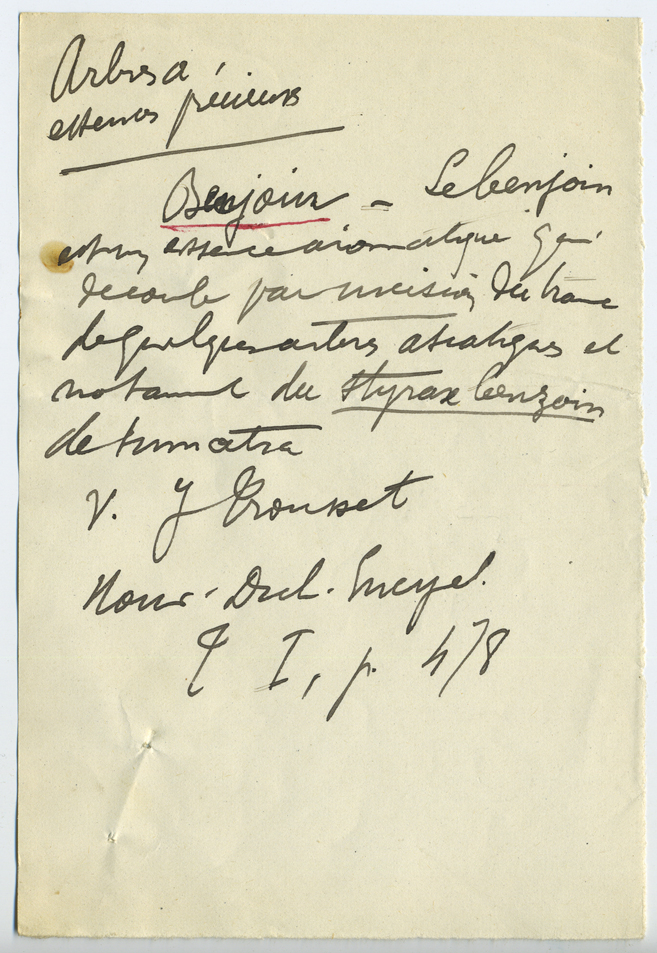 Arbres à
essences précieuses
Benjoin – Le benjoin
est une essence aromatique qui
découle par incision du tronc
de quelques arbres asiatiques et
notamment du styrax benzoin
de Sumatra
V. J Trousset
Nouv. Dict. Encycl.
T I, p. 478